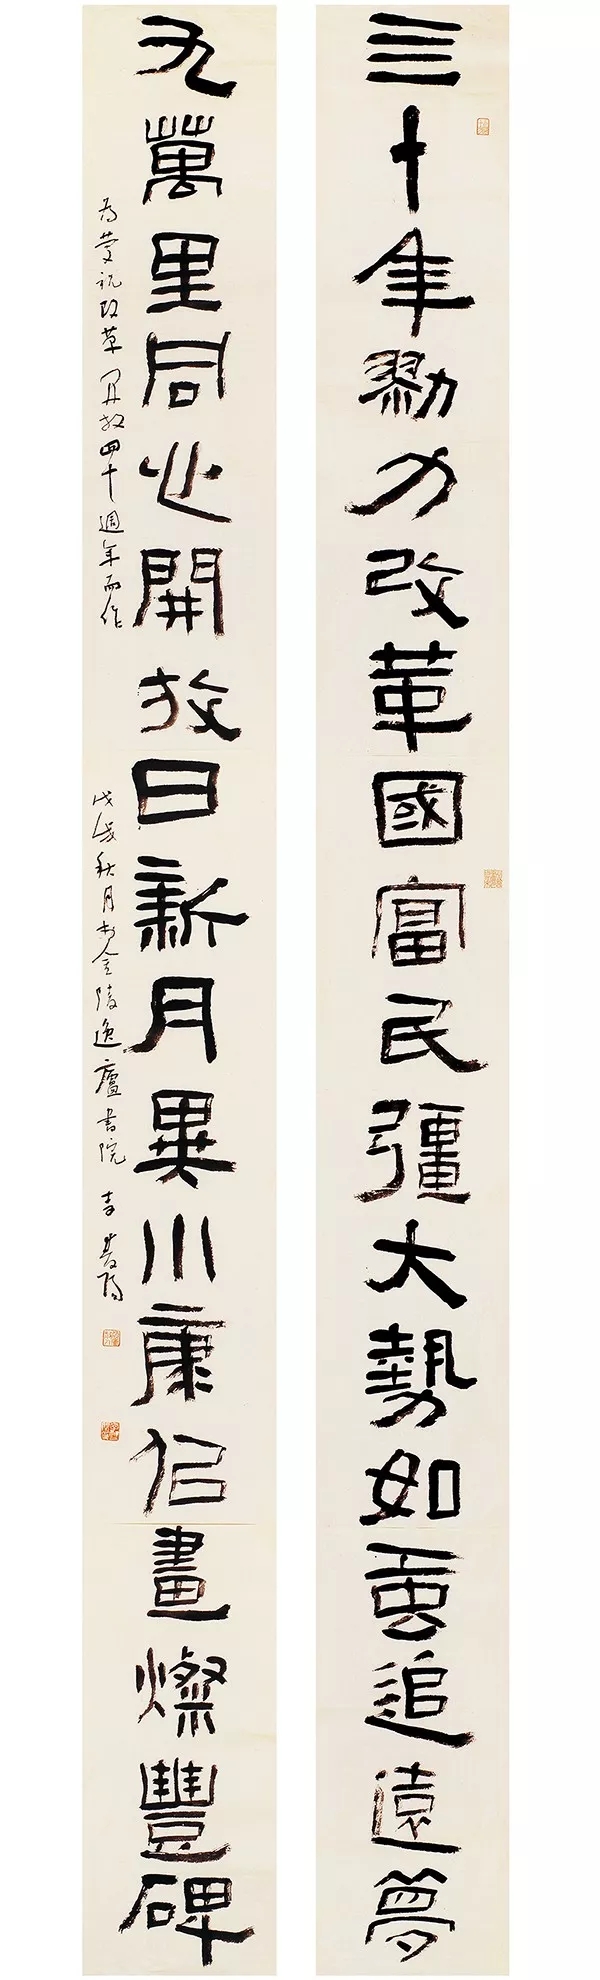 亖十年勠力改革國富民彊大勢如虹追遠夢
九萬里同心開放日新月異小康佀畫燦豐碑
為慶祝改革開放四十週年而作
戊戌秋月於金陵逸廬書院